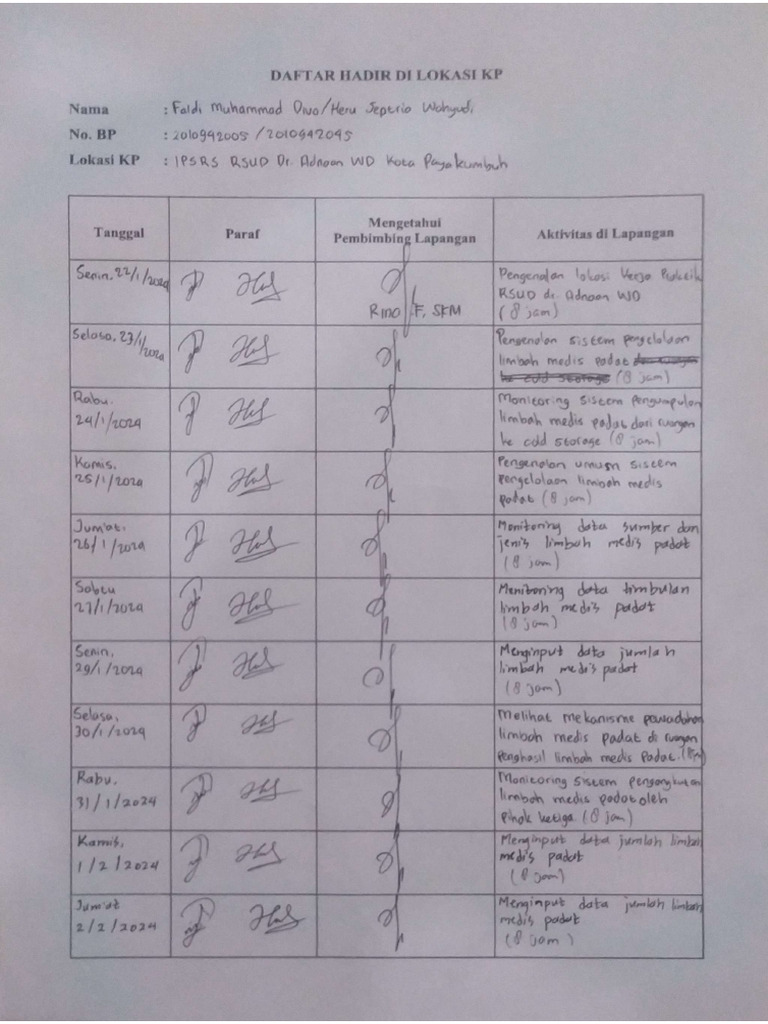 DAFTAR HADIR DI LOKASI KP
Nama : Faldi Muhammad Divo/Heru Septrio Wahyudi
No. BP : 2010942005 / 2010942045
Lokasi KP : IPSRS RSUD Dr. Adnaan WD Kota Payakumbuh
Tanggal
Paraf
Mengetahui
Pembimbing Lapangan
Aktivitas di Lapangan
Senin, 22/1/2024
Rino F, SKM
Pengenalan lokasi Kerja Praktik
RSUD dr. Adnaan WD
(8 jam)
Selasa, 23/1/
2024
Pengenalan sistem pengelolaan
limbah medis padat dari ruangan
ke cold storage (8 jam)
Rabu,
24/1/2024
Monitoring sistem pengumpulan
limbah medis padat dari ruangan
ke cold storage (8 jam)
Kamis,
25/1/2024
Pengenalan umum sistem
pengelolaan limbah medis
padat (8 jam)
Jum'at,
26/1/2024
Monitoring data sumber dan
jenis limbah medis padat
(8 jam)
Sabtu
27/1/2024
Monitoring data timbulan
limbah medis padat
(8 jam)
Senin,
29/1/2024
Menginput data jumlah
limbah medis padat
(8 jam)
Selasa,
30/1/2024
Melihat mekanisme pewadahan
limbah medis padat di ruangan
penghasil limbah medis padat.
Rabu,
31/1/2024
Monitoring sistem pengangkutan
limbah medis padat oleh
pihak ketiga (8 jam)
Kamis,
1/2/2024
Menginput data jumlah limbah
medis padat
(8 jam)
Jum'at
2/2/2024
Menginput data jumlah limbah
medis padat
(8 jam)